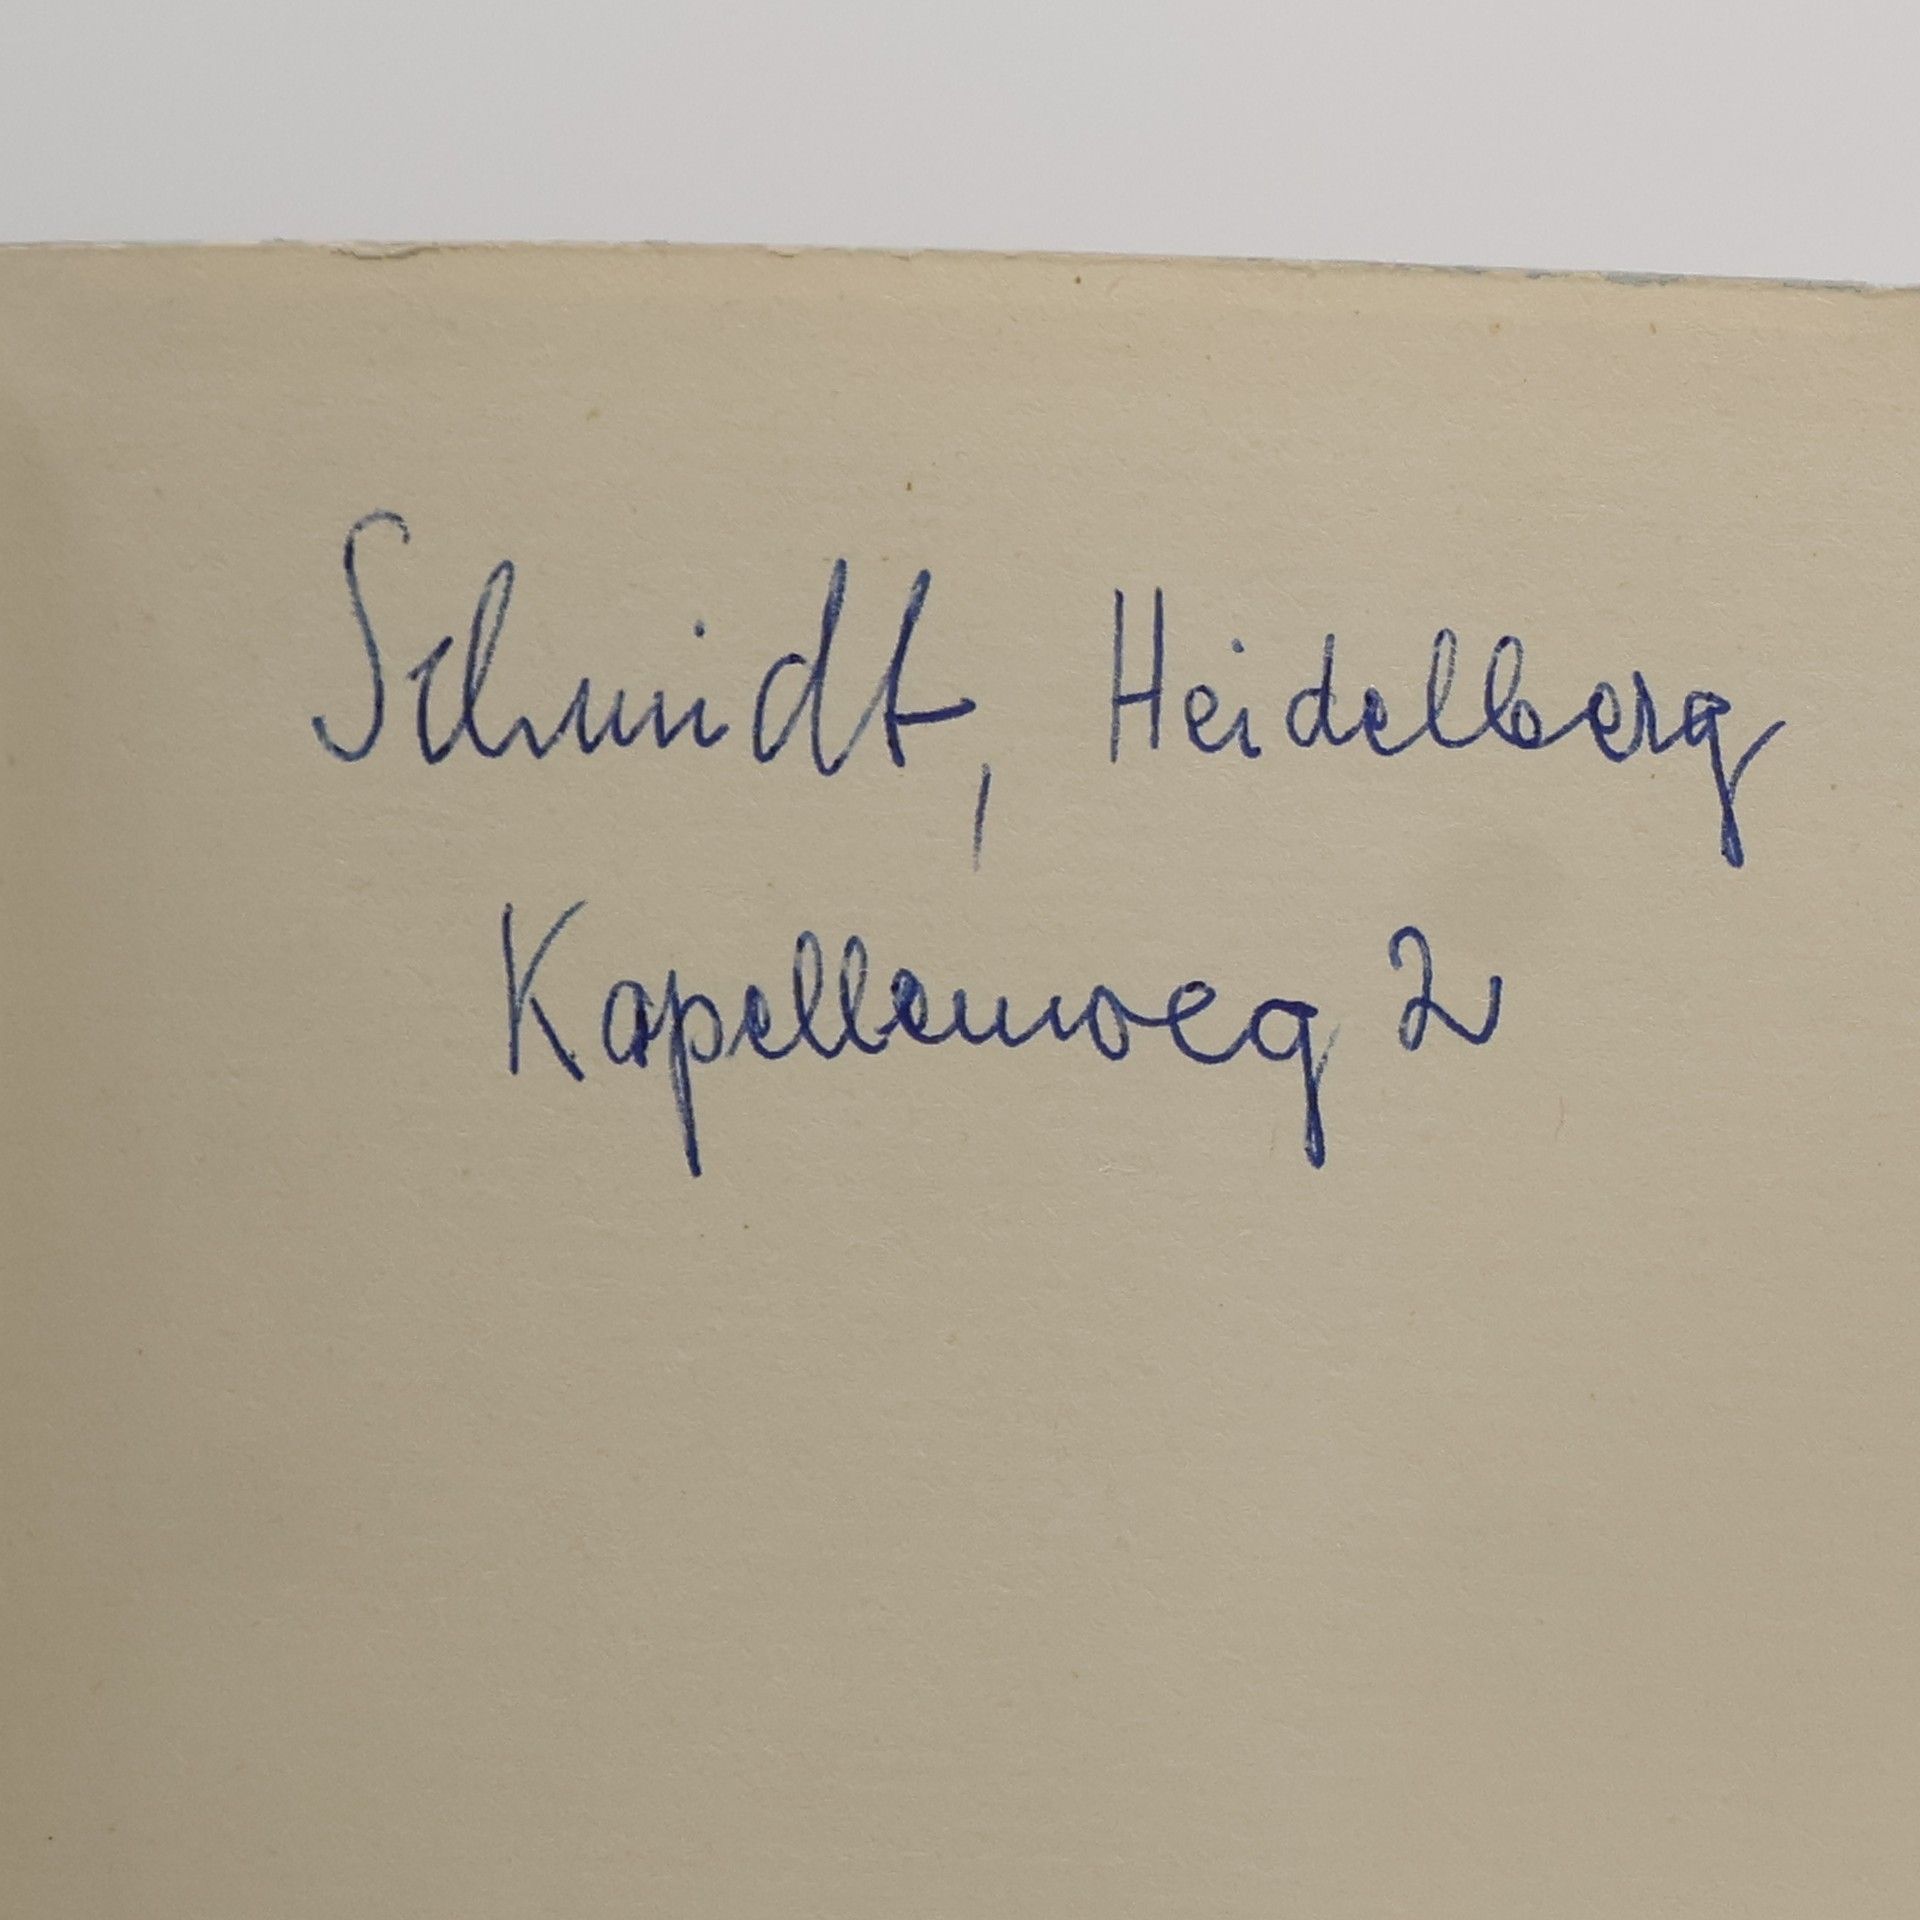 Schmidt, Heidelberg
Kapellenweg 2